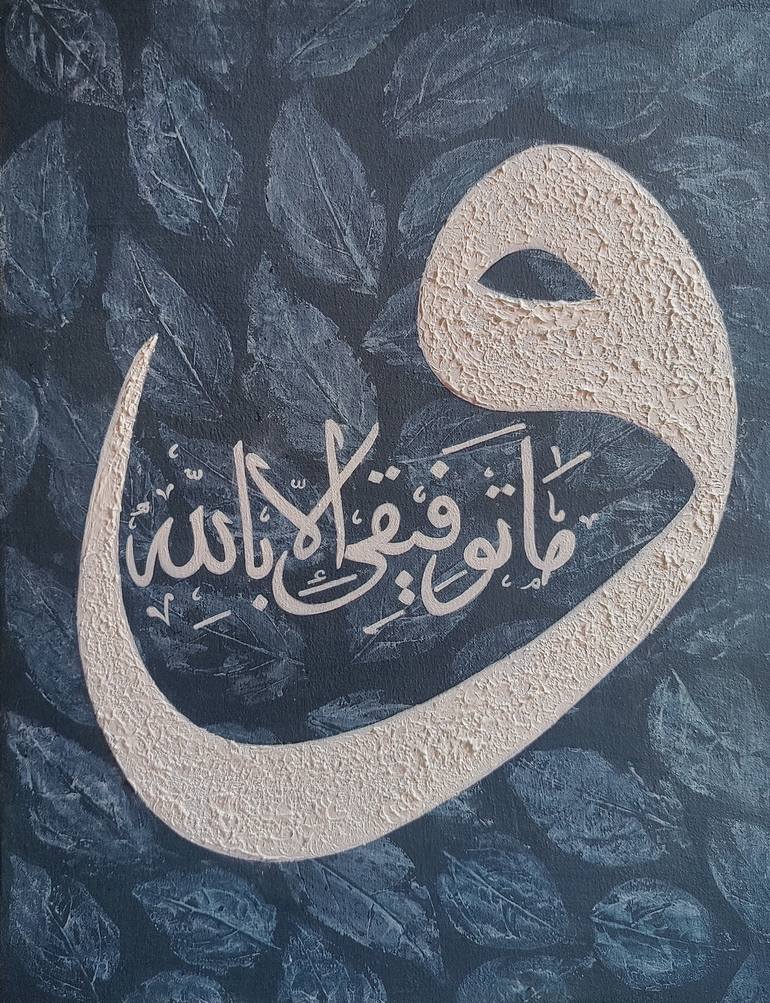 و
ما توفيقى إلّا بالله